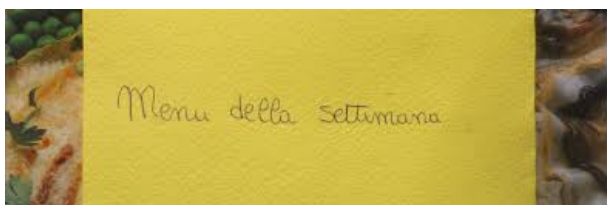 Menu della settimana